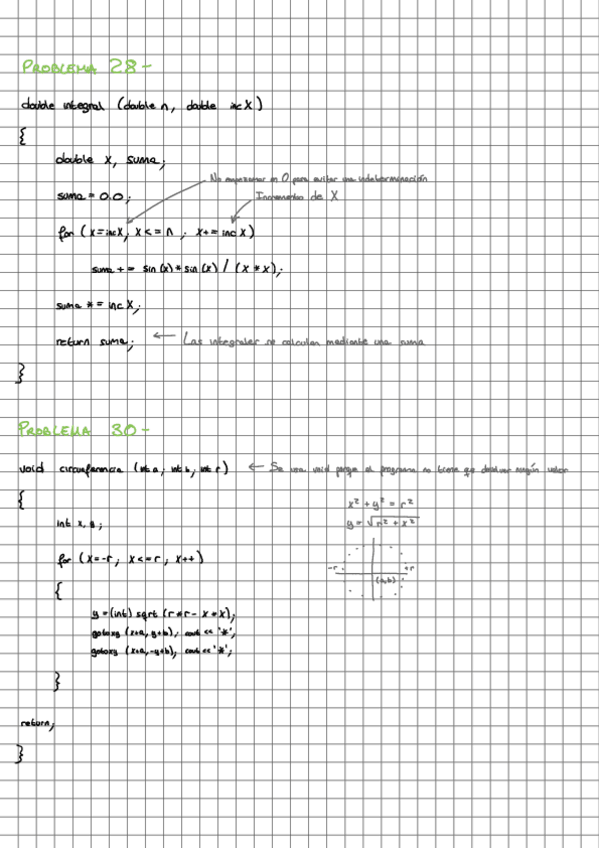 PROBLEMA 28-
double integral (double n, double incX)
{
double x, suma;
No empezamos en 0 para evitar una indeterminación
suma = 0.0;
Incremento de X
for (x=incX; x<=n ; x+=incX)
suma += sin(x)*sin(x) / (x*x);
suma *= incX;
return suma; ← Las integrales se calculan mediante una suma
}
PROBLEMA 30-
void circunferencia (int a; int b; int r) ← Se usa void porque el programa no tiene que devolver ningún valor
{
x² + y² = r²
int x, y;
y = √r² + x²
for (x=-r ; x<=r ; x++)
{
-r +r
(a,b)
y=(int) sqrt (r*r- x*x);
gotoxy (x+a, y+b); cout << '*';
gotoxy (x+a,-y+b); cout << '*';
}
return;
}